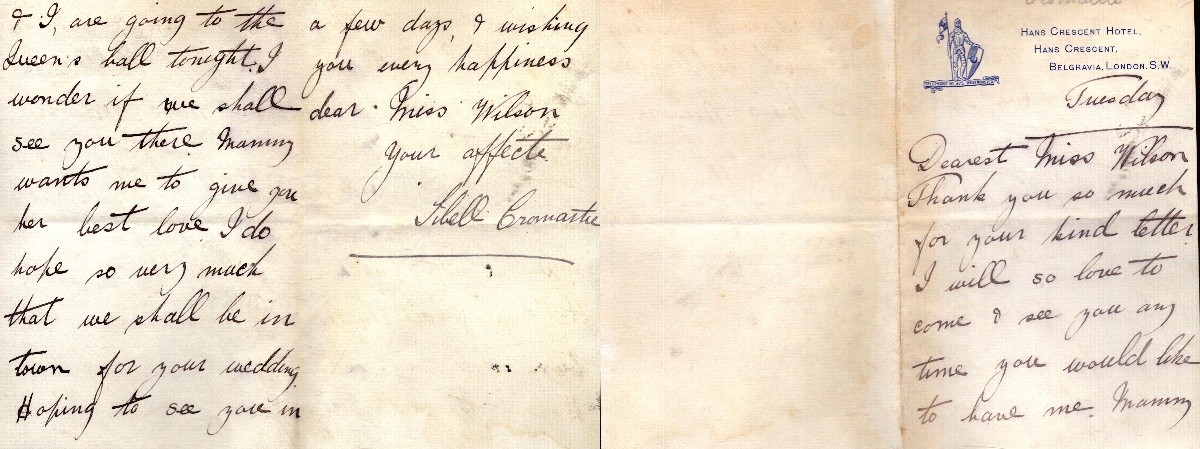 HANS CRESCENT HOTEL,
HANS CRESCENT,
BELGRAVIA, LONDON. S.W.
Tuesday
Dearest Miss Wilson
Thank you so much
for your kind letter.
I will so love to
come & see you any
time you would like
to have me. Mammy
& I, are going to the
Queen's ball tonight. I
wonder if we shall
see you there. Mammy
wants me to give you
her best love. I do
hope so very much
that we shall be in
town for your wedding.
Hoping to see you in
a few days, & wishing
you every happiness
dear Miss Wilson
Your affecte
Sibell Cromartie